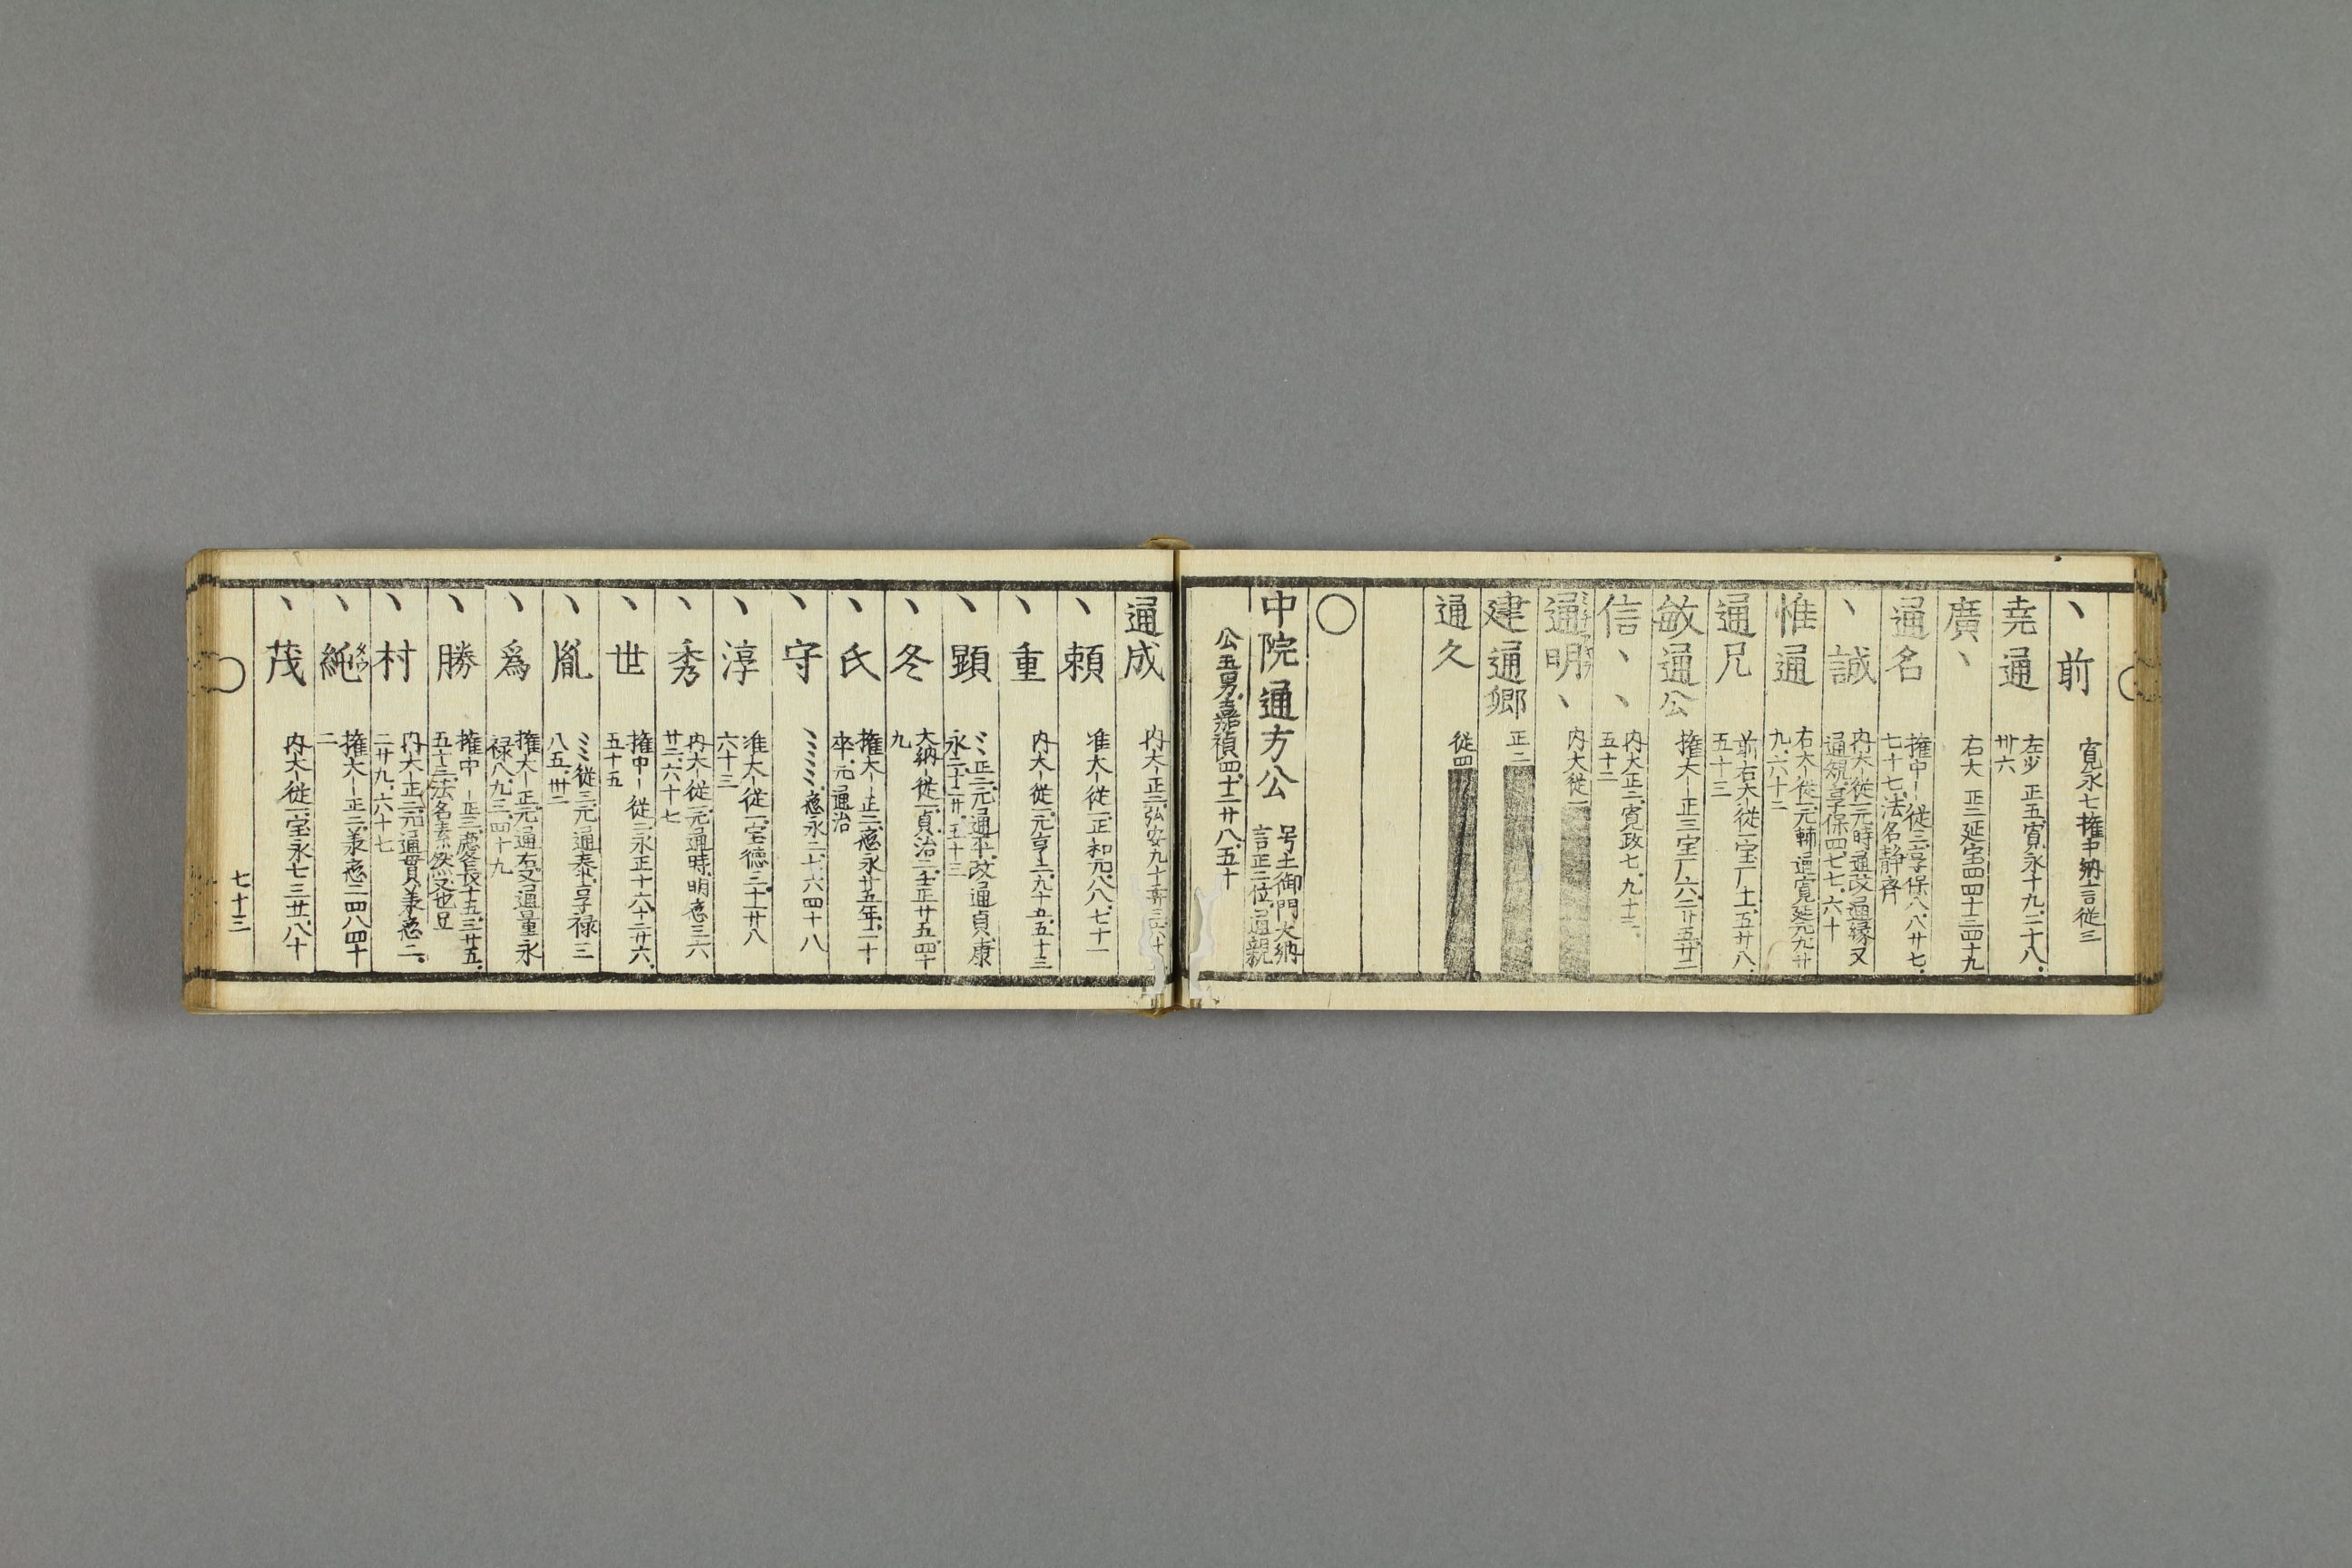 丶前 寛永七権中納言従三
尭通 左少 正五寛永十九、二十八、
卅六
廣丶 右大 正二延宝四四十二四十九
通名 権中ー従三享保八、八廿七、
七十七、法名静斉
丶誠 内大ー従一元時通改通縁又
通規享保四七七、六十
惟通 右大ー従一元輔通寛延元九廿
九、六十二
通兄 前右大ー従一宝厂十一、五廿八、
五十三
敏通公 権大ー正三宝厂六、二廿五、廿二
信丶丶 内大正二寛政七、九十三、
五十二
通明丶 内大従一
建通卿 正二
通久 従四
〇
中院通方公 号土御門大納
言正二位通親
公五男、嘉禎四、十二廿八、五十
通成 内大ー正二弘安九十二
丶頼 准大ー従一正和元、八八、七十一
丶重 内大ー従一元亨二、九十五、五十三
丶顕 ミミ正二元通平改通貞康
永二、十二廿、五十三
丶冬 大納ー従一貞治二、壬正廿五、四十
九
丶氏 権大ー正二應永廿五年、二十
卒、元通治
丶守 ミミミミ應永二七、六四十八
丶淳 准大ー従一宝徳三、十一廿八
六十三
丶秀 内大ー従一元通時、明應三六
廿二、六十七
丶世 権中ー従二永正十六、十二廿六、
五十五
丶胤 ミミ従三元通泰享禄三
八五、卅二
丶為 権大ー正二元通右又通量永
禄八、九三、四十九
丶勝 権中ー正三慶長十五、三廿五、
五十三、法名素然又也足
丶村 内大ー正二元通貫兼應二、
二廿九、六十七
丶純 権大ー正二兼應二四八四十
二
丶茂 内大ー従一宝永七三廿一、八十
七十三